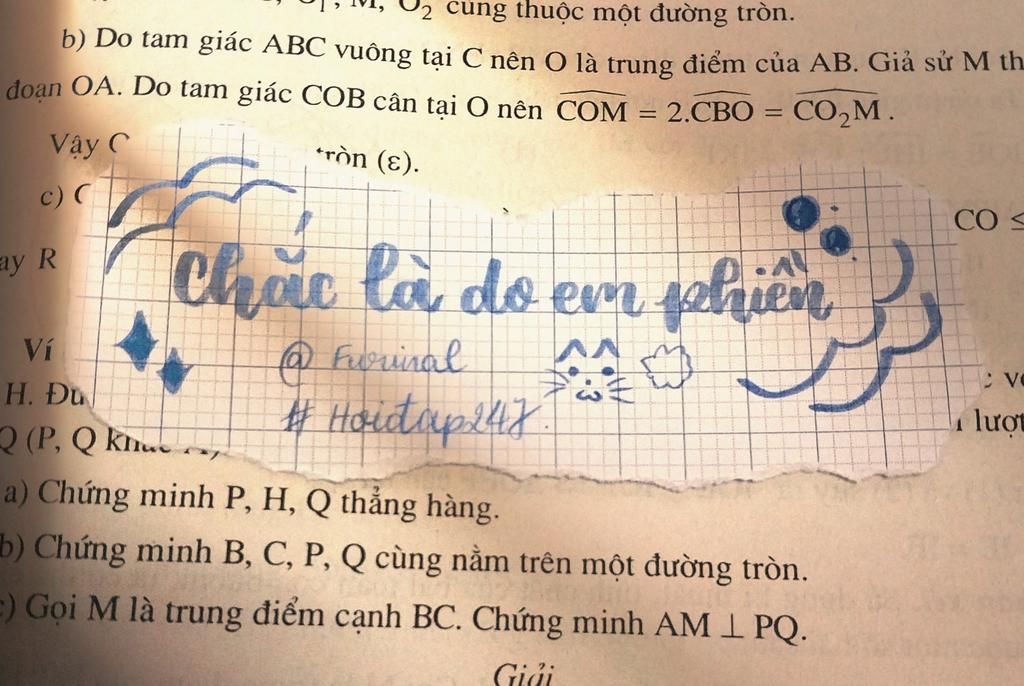 M, O₂ cùng thuộc một đường tròn.
b) Do tam giác ABC vuông tại C nên O là trung điểm của AB. Giả sử M th
đoạn OA. Do tam giác COB cân tại O nên COM = 2.CBO = CO₂M.
Vậy C
tròn (ε).
c) C
CO ≤
ay R
Chắc là do em phiền
Ví
@ Furinal
H. Đư
# Hoidap247.
lượt
Q (P, Q khác A)
a) Chứng minh P, H, Q thẳng hàng.
b) Chứng minh B, C, P, Q cùng nằm trên một đường tròn.
c) Gọi M là trung điểm cạnh BC. Chứng minh AM ⊥ PQ.
Giải